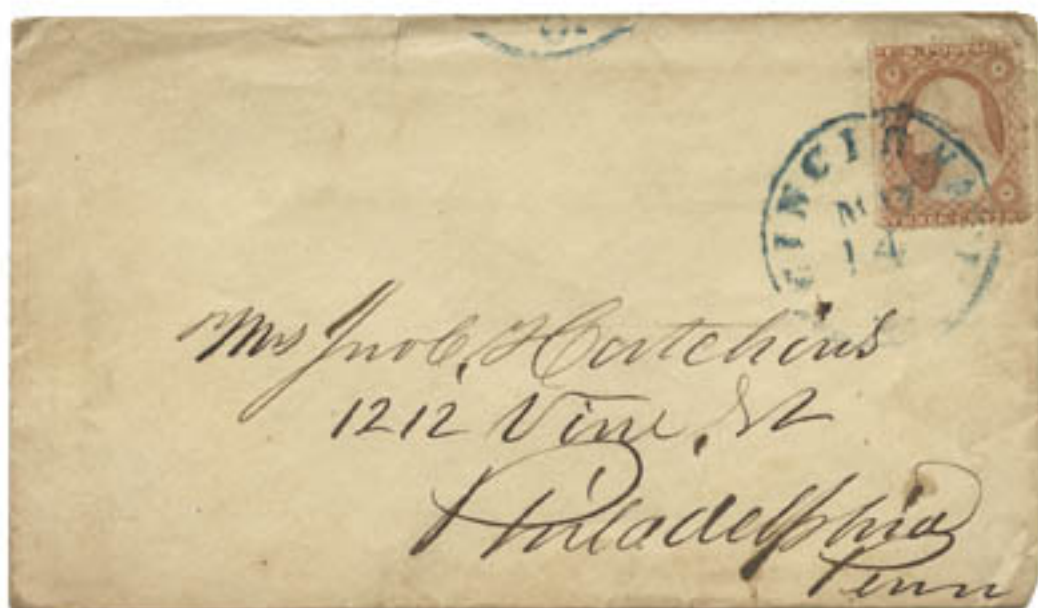 O.
CINCINNATI
MAY
14
Mrs Jno C. Hutchins
1212 Vine St
Philadelphia
Penn